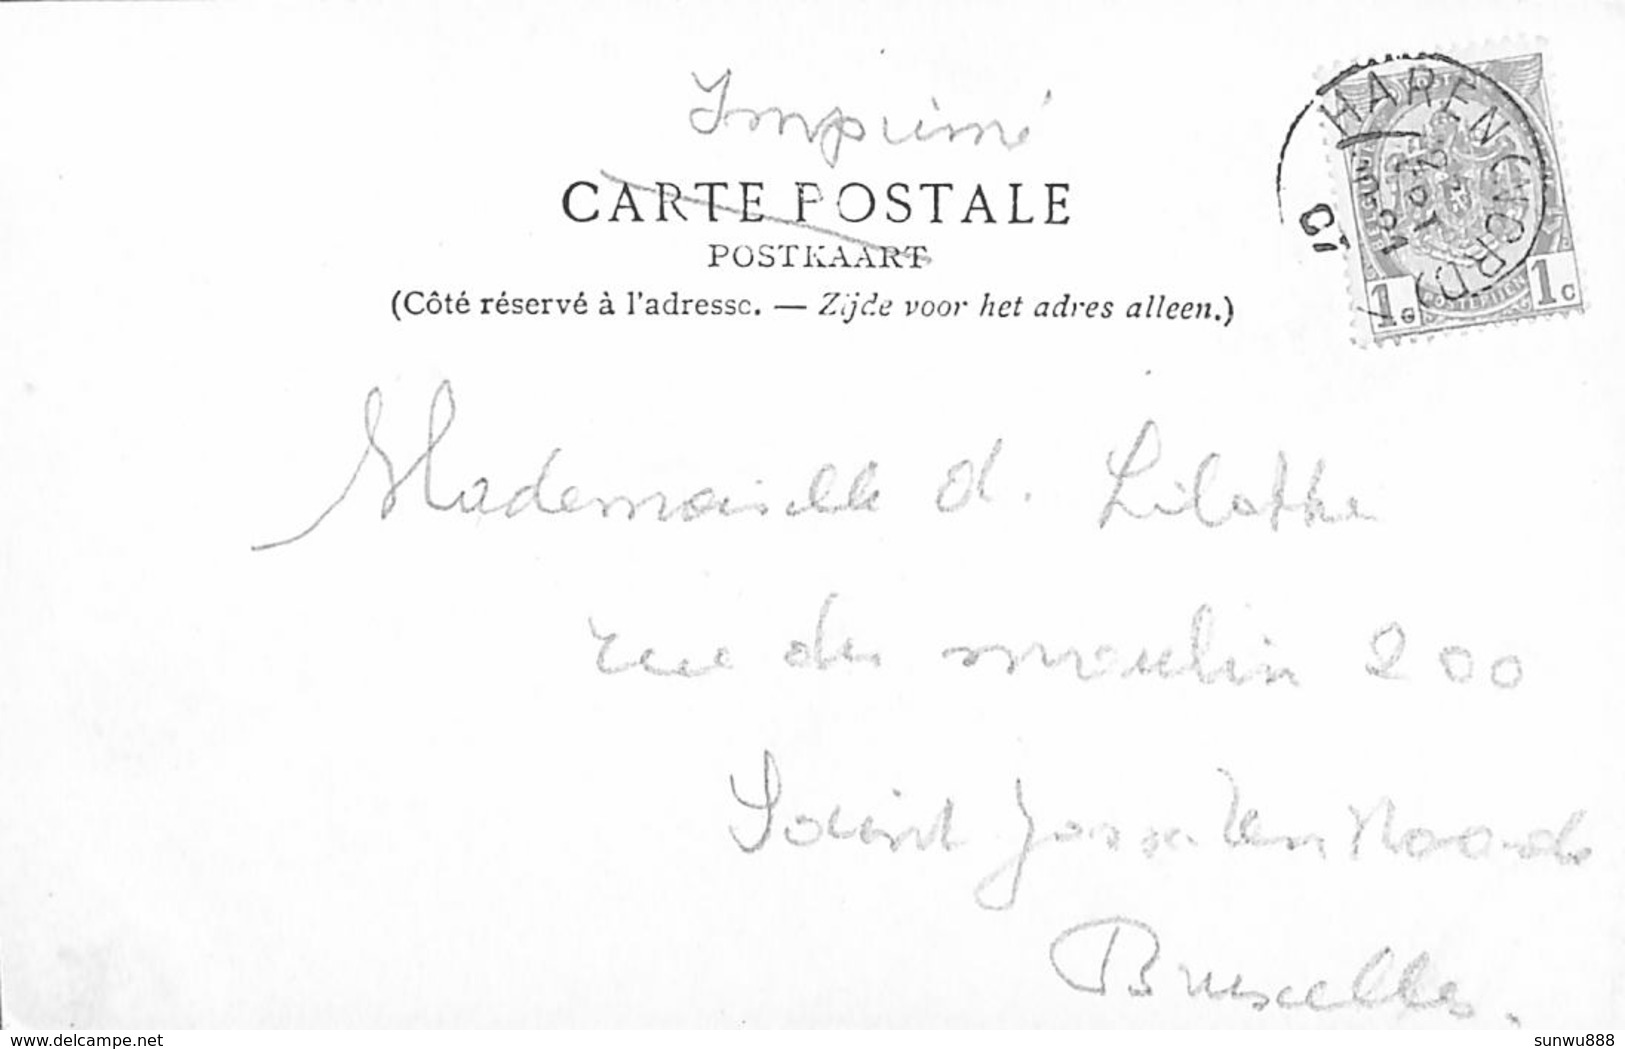 Imprimé
CARTE POSTALE
POSTKAART
(Côté réservé à l'adresse. — Zijde voor het adres alleen.)
HAREN (NORD)
1c 1c
Mademoiselle d.
rue du moulin 200
Saint Josse ten Noode
Bruxelles.
www.delcampe.net
sunwu888